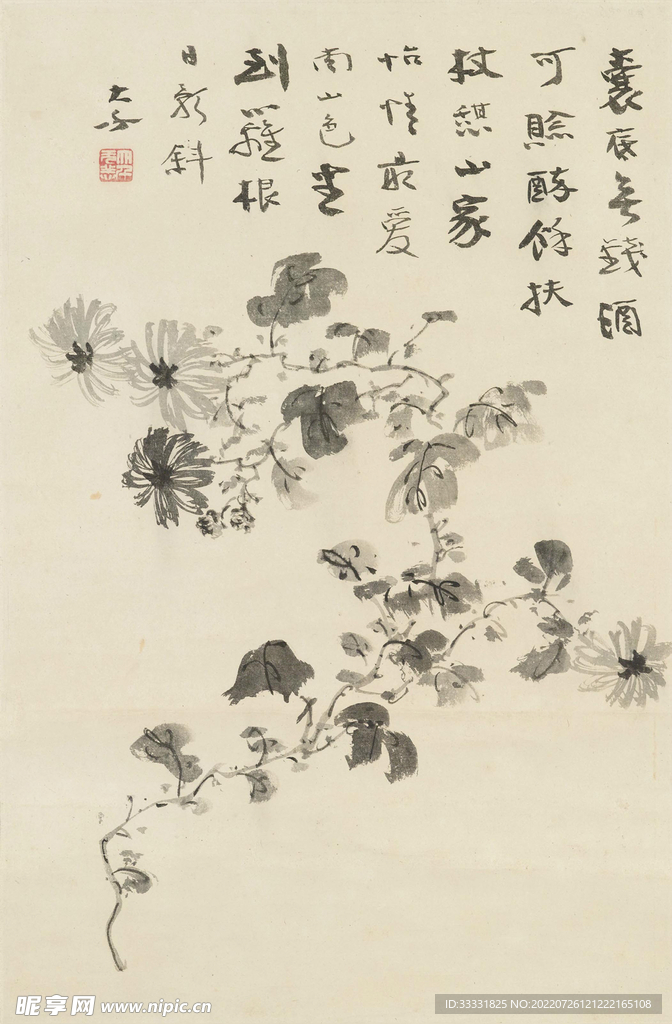 囊底無錢酒
可賒醉餘扶
杖憩山家
怡情最愛
南山色坐
到籬根
日影斜
大年
昵享网 www.nipic.cn
ID:33331825 NO:20220726121222165108